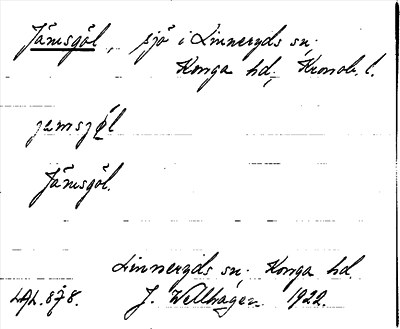 Jämsgöl, sjö i Linneryds sn;
Konga hd, Kronob. l.
jemsjǿl
Jämsgöl.
Linneryds sn; Konga hd.
LAL. 878. J. Wellhagen 1922.